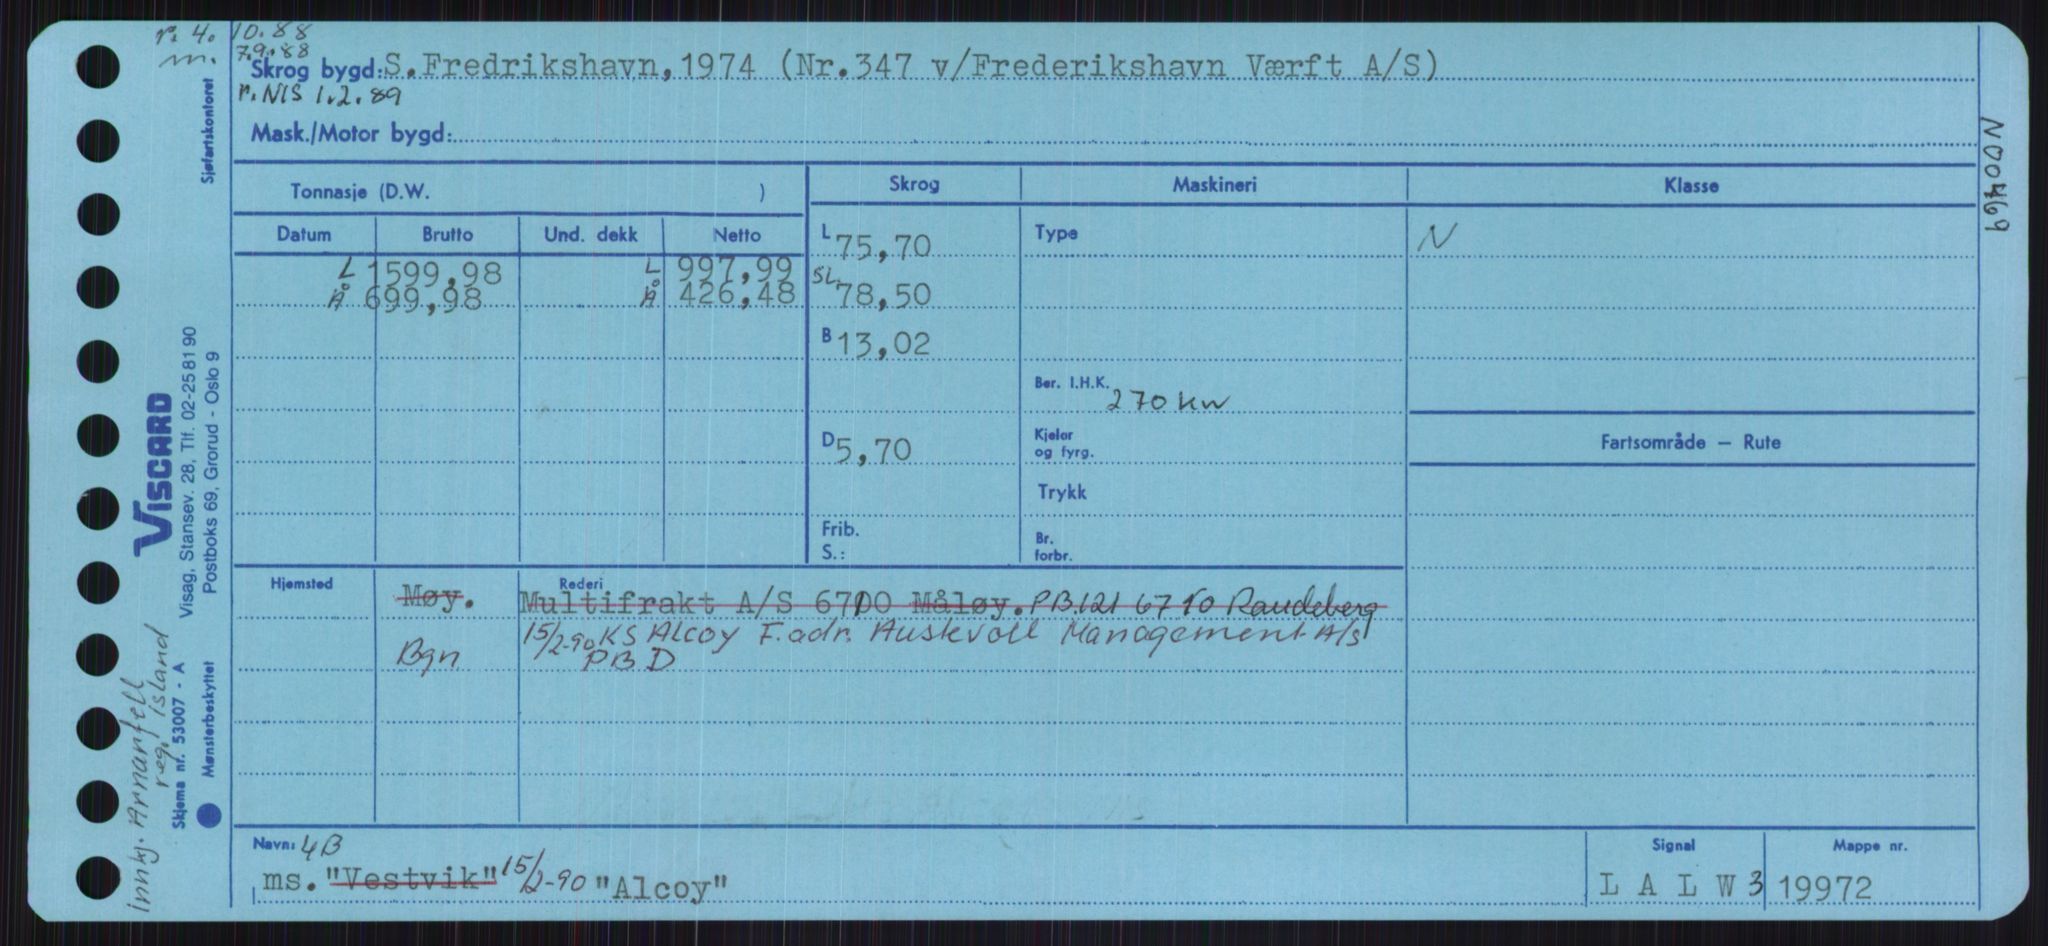 r. 4. 10.88
m. 7.9.88
Skrog bygd: S.Fredrikshavn, 1974 (Nr.347 v/Frederikshavn Værft A/S)
r. NIS 1.2.89
Mask./Motor bygd:
Sjøfartskontoret
N00469
Tonnasje (D.W. )
Skrog Maskineri Klasse
Datum Brutto Und. dekk Netto
L 75,70 Type N
L 1599,98 L 997,99
Å 699,98 Å 426,48
SL 78,50
B 13,02
Ber. I.H.K. 270 kw
Fartsområde — Rute
D 5,70
Kjeler og fyrg.
Trykk
Frib.
S.:
Br. forbr.
VISCARD
Visag, Stansev. 28, Tlf. 02-25 81 90
Postboks 69, Grorud - Oslo 9
Hjemsted Rederi
Møy. Multifrakt A/S 6700 Måløy. P.B. 121 6710 Raudeberg
15/2-90 KS Alcoy F. adr. Austevoll Management A/S
Bgn PB D
Innkj. Arnarfell
reg. Island
Skjema nr. 53007 - A
Mønsterbeskyttet
Navn: 4B
Signal Mappe nr.
ms. "Vestvik" 15/2-90 "Alcoy"
L A L W 3 19972